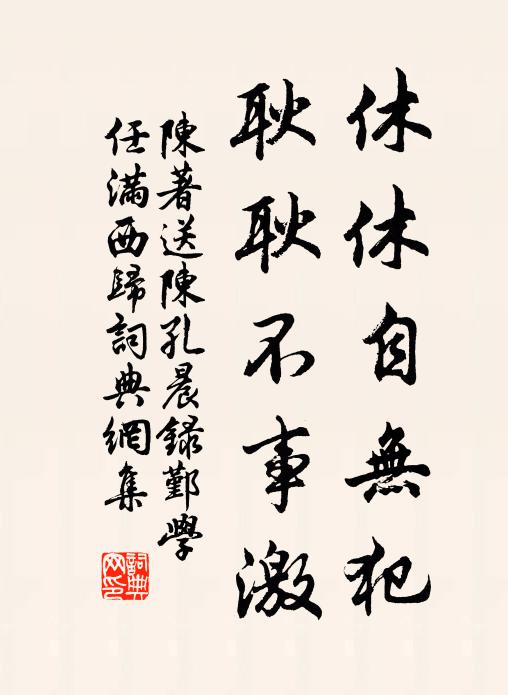 休休自無犯
耿耿不事激
陳著送陳孔晨錄鄞學
任滿西歸詞典網集
詞典網印